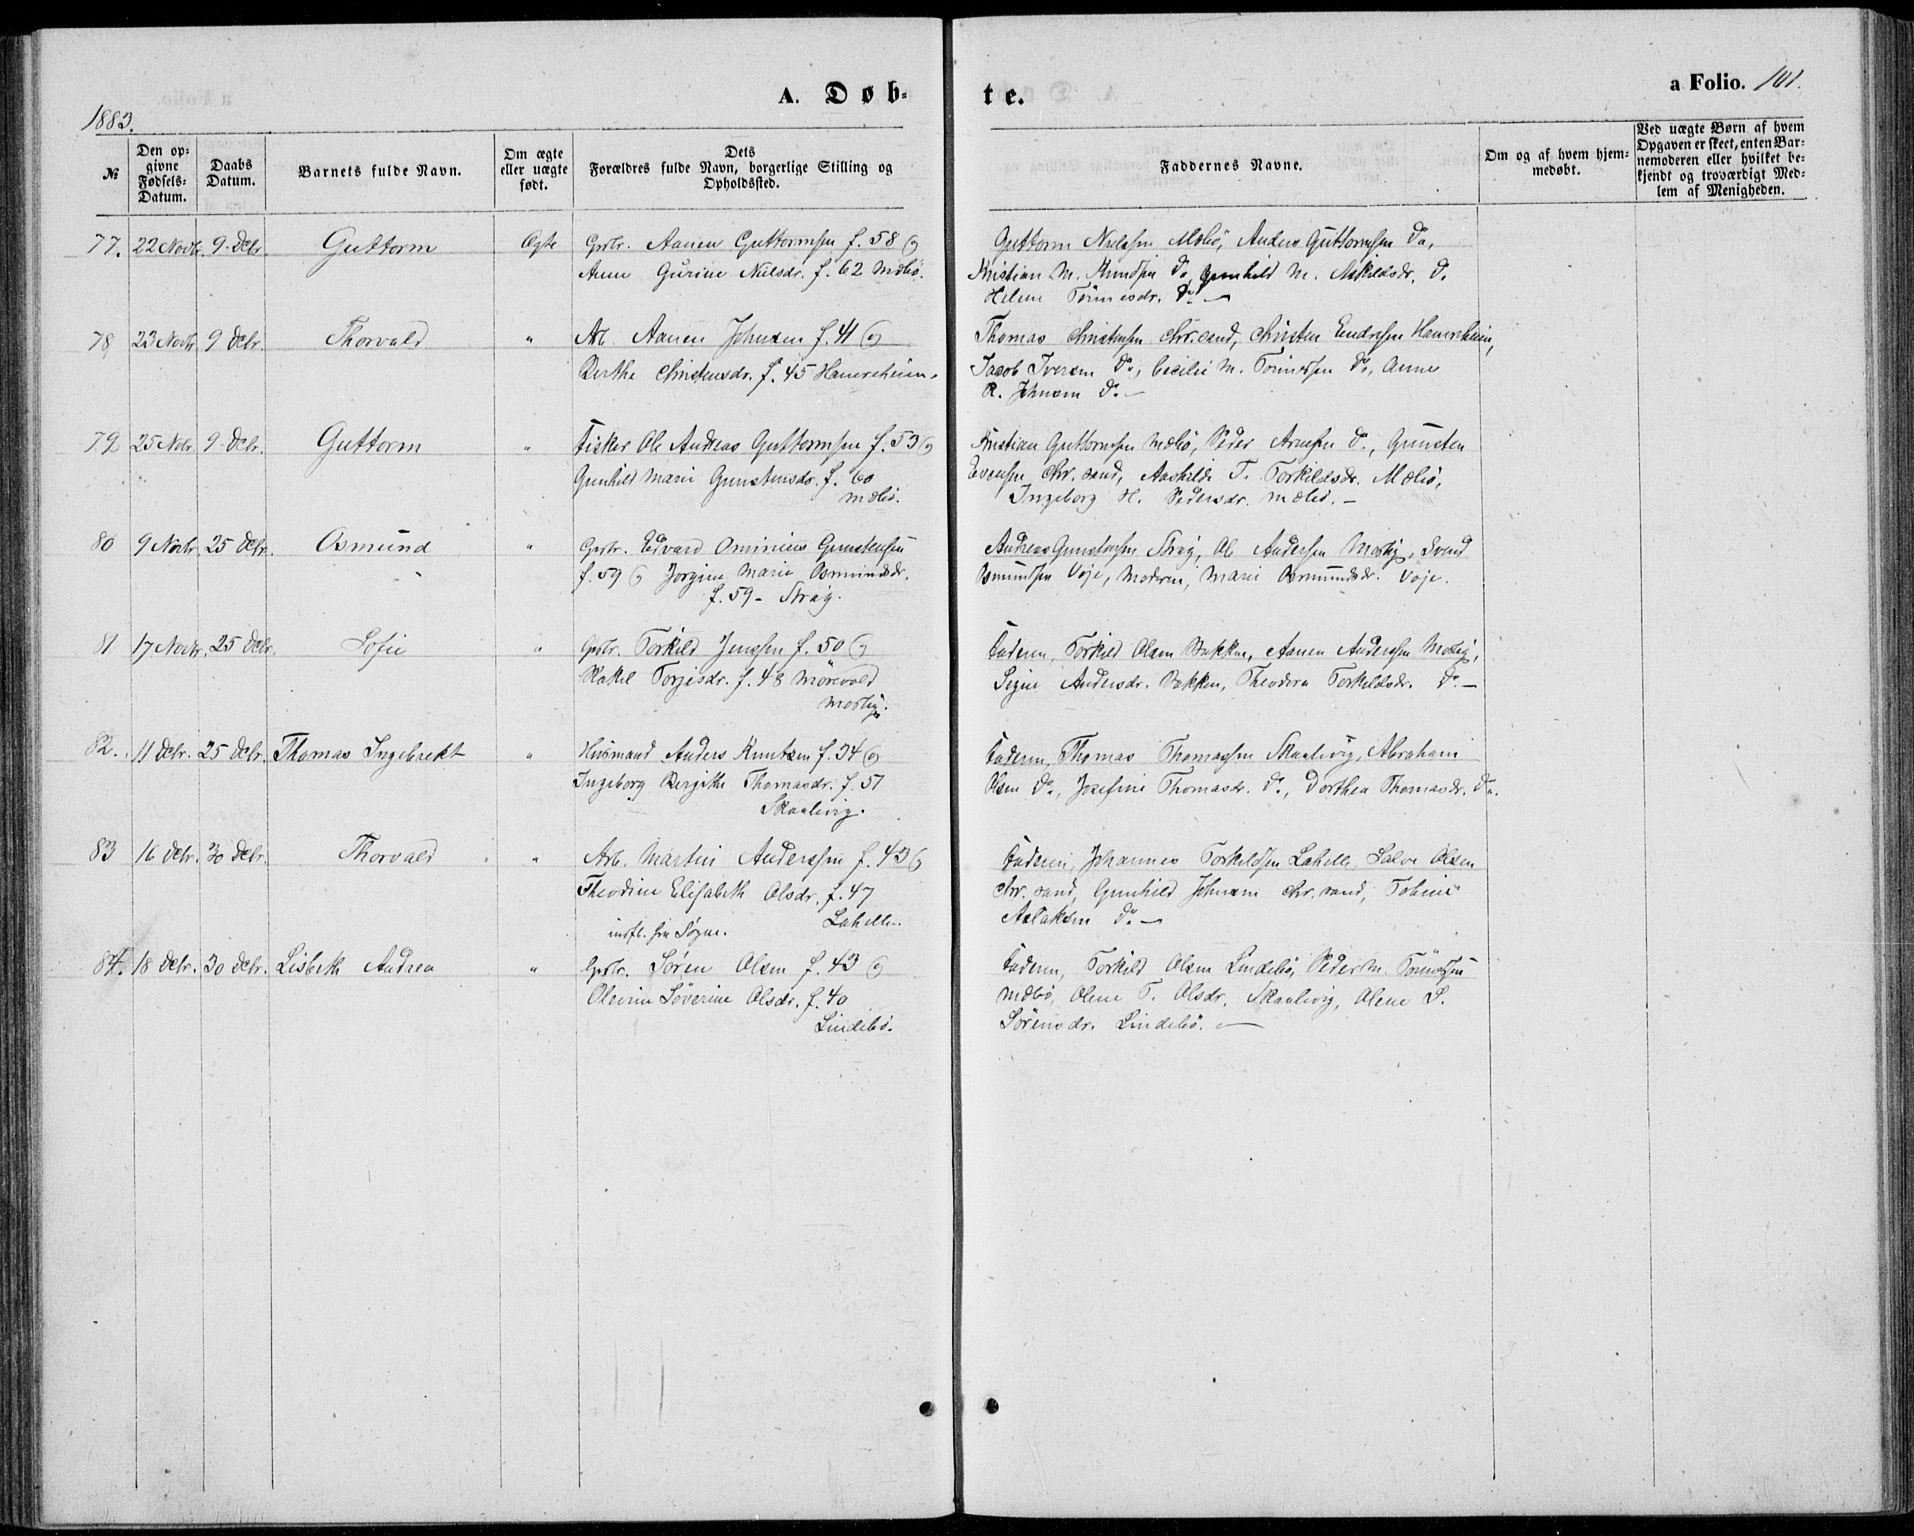 A. Døb-
te.
a Folio. 101.
1883.
№
Den opgivne Fødsels-Datum.
Daabs Datum.
Barnets fulde Navn.
Om ægte eller uægte født.
Dets Forældres fulde Navn, borgerlige Stilling og Opholdssted.
Faddernes Navne.
Om og af hvem hjemmedøbt.
Ved uægte Børn af hvem Opgaven er skeet, enten Barnemoderen eller hvilket bekjendt og troværdigt Medlem af Menigheden.
77. 22 Novbr. 9. Decbr. Guttorm Ægte Grbr. Aanen Guttormsen f. 58 og
Anne Gurine Nielsdr. f. 62 Mæbö.
Guttorm Nielsen Mæbö, Anders Guttormsen Do,
Kristian M. Knudsen Do, Gunhild M. Askildsdr. Do
Helene Tönnesdr. Do —
78 23 Novbr 9 Decbr. Thorvald " Arb. Aanen Johnsen f. 41 og
Berthe Christensdr. f. 45 Haneveheien.
Thomas Christensen Chr.sand, Christen Endresen Haneveheien,
Jacob Iversen Do, Cecilie M. Tönnesen Do, Anne
R. Johnsen Do —
79 25 Nobr. 9 Decbr. Guttorm " Fisker Ole Andreas Guttormsen f. 53 og
Gunhild Marie Gunstensdr. f. 60
Mæbö.
Kristian Guttormsen Mæbö, Peder Arnesen Do, Gunsten
Evensen Chr.sand, Aashilde T. Torkildsdr. Mæbö,
Ingeborg H. Pedersdr. Mæbö. —
80 9 Novbr. 25 Decbr. Osmund " Grbr. Edvard Ominius Gunstensen
f. 59 og Jorgine Marie Osmundsdr.
f. 59 - Stray.
Andreas Gunstensen Stray, Ol Andersen Mosby, Svend
Osmundsen Voje, Moderen, Marie Osmundsdr. Voje.
81 17 Novbr. 25 Decbr. Sofie " Grbr. Torkild Jensen f. 50 og
Rakel Torjesdr. f. 48 Mörevold
Mosby.
Faderen, Torkild Olsen Bakken, Aanen Andersen Mosby,
Signe Andersdr. Bakken, Theodora Torkildsdr. Do —
82. 11 Decbr. 25 Decbr. Thomas Ingebrekt " Husmand Anders Knutsen f. 34 og
Ingeborg Bergithe Thomasdr. f. 51
Skaalevig.
Faderen, Thomas Thomassen Skaalevig, Abraham
Olsen Do, Josefine Thomasdr. Do, Dorthea Thomasdr. Do.
83 16 Decbr. 30 Decbr. Thorvald " Arb. Martin Andersen f. 43 og
Theodine Elisabeth Olsdr. f. 47
Lahelle.
indfl. fra Søgne.
Faderen, Johannes Torkildsen Lahelle, Salve Olsen
Chr.sand, Gunhild Johnsen Chr.sand, Tobine
Aslaksen Do —
84. 18 Decbr. 30 Decbr. Lisbeth Andrea " Grbr. Sören Olsen f. 43 og
Olevine Söverine Olsdr. f. 40
Lindebö.
Faderen, Torkild Olsen Lindebö, Peder M. Tönnesen
Mæbö, Olene T. Olsdr. Skaalevig, Olene S.
Sörensdr. Lindebö. —